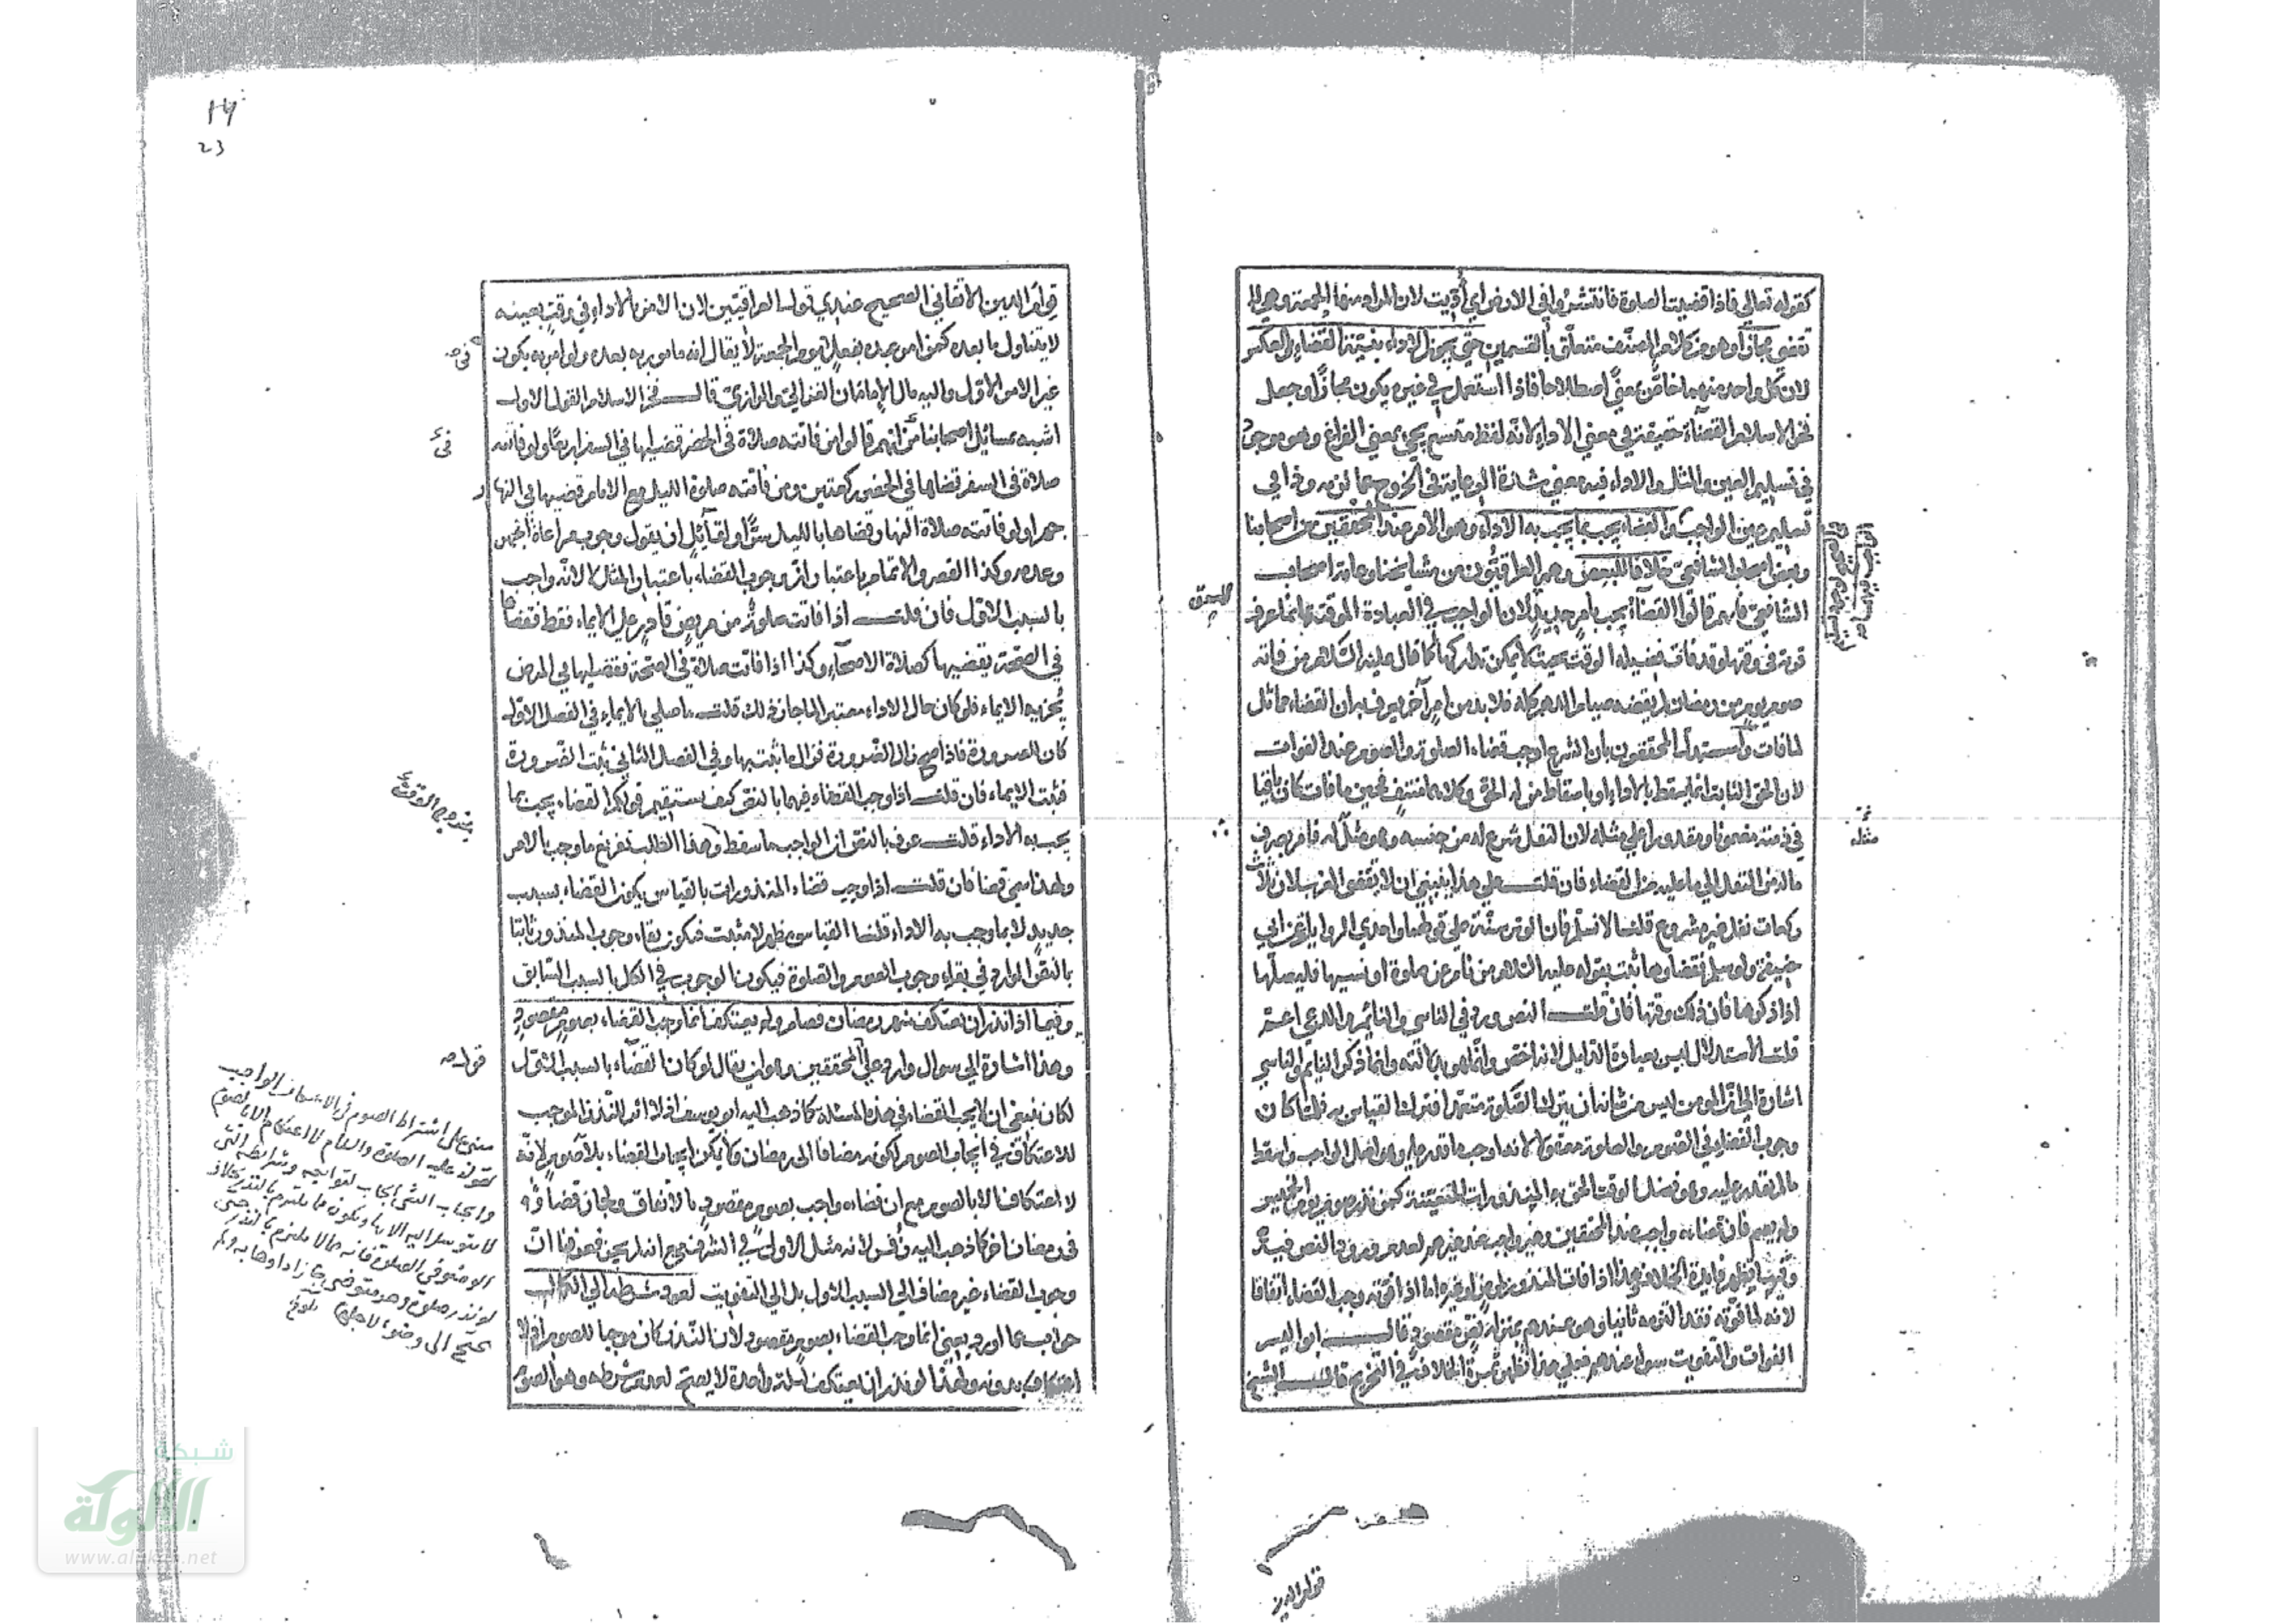 كقوله تعالى فاذا قضيت الصلوة فانتشروا في الارض اي أدّيت لان المراد منها الجمعة وهي لا
تقضى مجازا وهو من كلام المصنف متعلق بالقسمين حتى يجوز الاداء بنية القضاء وبالعكس
لان كل واحد منهما خاصّ بمعنًى اصطلاحا فاذا استعمل في غيره يكون مجازًا وجعل
فخر الاسلام القضاء حقيقة في معنى الاداء لانه لفظ متسع يجيء بمعنى الفراغ وهو موجود
في تسليم العين والمثل والاداء فيه معنى شدة الرعاية في الخروج عما لزمه وذا في
تسليم عين الواجب والقضاء يجب بما يجب به الاداء وهو الامر عند المحققين من اصحابنا
وبعض اصحاب الشافعي خلافا للبعض وهم العراقيون من مشايخنا وعامة اصحاب
الشافعي فانهم قالوا القضاء يجب بامر جديد لان الواجب في العبادة الموقتة انما عرف
قربة في وقتها وقد فات فضيلة الوقت بحيث لا يمكن تداركها كما قال عليه السلام من فاته
صوم يوم من رمضان لم يقضه صيام الدهر كله فلا بد من امر آخر يعرف به ان القضاء مماثل
لما فات واستدل المحققون بان الشرع اوجب قضاء الصلوة والصوم عند الفوات
لان الحق الثابت انما يسقط بالاداء او باسقاط من له الحق وكلاهما منتف فحين ما فات كان باقيا
في ذمته مضمونا ومقدورا على مثله لان النفل شرع له من جنسه وهو مثل له فامر بصرف
ماله من النفل الى ما عليه من القضاء فان قلت على هذا ينبغي ان لا يقضى المغرب لان ثلاث
ركعات نفل غير مشروع قلنا لا نسلم فان الوتر سنة على قولهما واحدى الروايات عن ابي
حنيفة ولو سلم فقضاوها ثبت بقوله عليه السلام من نام عن صلوة او نسيها فليصلها
اذا ذكرها فان ذلك وقتها فان قلت النص ورد في الناسي والنائم والمدعى اعم
قلت الاستدلال ليس بعبارة الدليل لانه اخص وانما هو بدلالته وانما ذكر النايم والناسي
اشارة الى ان المؤمن ليس من شانه ان يترك الصلوة متعمدا فترك القياس به فلما كان
وجوب القضاء في الصوم والصلوة معقولا لانه اوجب ما قدر عليه وهو اصل الواجب واسقط
مالم يقدر عليه وهو فضل الوقت الحق به المنذورات المتعينة كمن نذر صوم يوم الخميس
ولم يصم فان قضاءه واجب عند المحققين وغير واجب عند غيرهم لعدم ورود النص فيه
وثمرة الخلاف هذا اذا فات المنذور بمرض او غيره اما اذا فوته وجب القضاء اتفاقا
لانه لما فوته فقد التزمه ثانيا وهو عندهم بمنزلة نص مقصود قال ابو اليسر
الفوات والتفويت سواء عندهم فعلى هذا تظهر ثمرة الخلاف في التخريج قال الشيخ
مثله
قوام الدين
قوام الدين الاتقاني الصحيح عندي قول العراقيين لان الامر بالاداء في وقت بعينه
لا يتناول ما بعده كمن امر عبده بفعل يوم الجمعة لا يقال انه مامور به بعده ولو امر به يكون
غير الامر الاول واليه مال الامامان الغزالي والرازي قال فخر الاسلام القول الاول
اشبه بمسائل اصحابنا من انهم قالوا من فاتته صلاة في الحضر قضيها في السفر اربعًا ولو فاتته
صلاة في السفر قضاها في الحضر ركعتين ومن فاتته صلوة الليل مع الامام قضيها في النهار
جهرا ولو فاتته صلاة النهار وقضاها بالليل سرًا ولقائل ان يقول وجوب مراعاة الجهر
وعدمه وكذا القصر والاتمام باعتبار ان وجوب القضاء باعتبار المثل لا لانه واجب
بالسبب الاول فان قلت اذا فاتت صلوة من مريض قادر على الايماء فقط فقضاها
في الصحة يقضيها كصلاة الاصحاء وكذا اذا فاتت صلاة في الصحة فقضيها في المرض
يجزيه الايماء فلو كان حال الاداء معتبرا لما جاز ذلك قلت ما صلى بالايماء في الفصل الاول
كان لضرورة فاذا صح زال الضرورة فزال ما ثبت بها وفي الفصل الثاني ثبت الضرورة
فثبت الايماء فان قلت اذا وجب القضاء فيهما بالنص كيف يستقيم قولكم القضاء يجب بما
يجب به الاداء قلت عرف بالنص ان الواجب ما سقط وهذا الطلب تفريغ ما وجب بالامر
ولهذا سمي قضا فان قلت اذا وجب قضاء المنذورات بالقياس يكون القضاء بسبب
جديد لا بما وجب به الاداء قلنا القياس مظهر لا مثبت فيكون بقاء وجوب المنذور ثابتا
بالنص الوارد في بقاء وجوب الصوم والصلوة فيكون الوجوب في الكل بالسبب السابق
وفيما اذا نذر ان يعتكف شهر رمضان فصام ولم يعتكف انما وجب القضاء بصوم مقصود
وهذا اشارة الى سوال وارد على المحققين وهو ان يقال لو كان القضاء بالسبب الاول
لكان ينبغي ان لا يجب القضاء في هذه المسئلة كما ذهب اليه ابو يوسف اذ لا اثر للنذر الموجب
للاعتكاف في ايجاب الصوم لكونه مضافا الى رمضان ولا يمكن ايجاب القضاء بلا صوم لانه
لا اعتكاف الا بالصوم مع ان قضاءه واجب بصوم مقصود بالاتفاق ولجاز قضاؤه
في رمضان اخر كما ذهب اليه زفر لانه مثل الاول في الشرف مع انه لم يجز فعرفنا ان
وجوب القضاء غير مضاف الى السبب الاول بل الى التفويت لعود شرطه الى الكمال
جواب عما اورد يعني انما وجب القضاء بصوم مقصود لان النذر كان موجبا للصوم اذ لا
اعتكاف بدونه ولهذا لو نذر ان يعتكف ليلة واحدة لا يصح لعدم شرطه وهو الصوم
بخروج الوقت
مبنى على اشتراط الصوم في الاعتكاف الواجب
لقوله عليه الصلوة والسلام لا اعتكاف الا بالصوم
وايجاب الشئ ايجاب لتوابعه وشرائطه التي
لا يتوسل اليه الا بها ويكون مما يلتزم بالنذر بخلاف
الوضوء في الصلوة فانه مما لا يلتزم بالنذر حتى
لو نذر صلوة وهو متوضئ جاز اداوها به ولم
يحتج الى وضوء لاجلها
23
شبكة
الألوكة
www.alukah.net